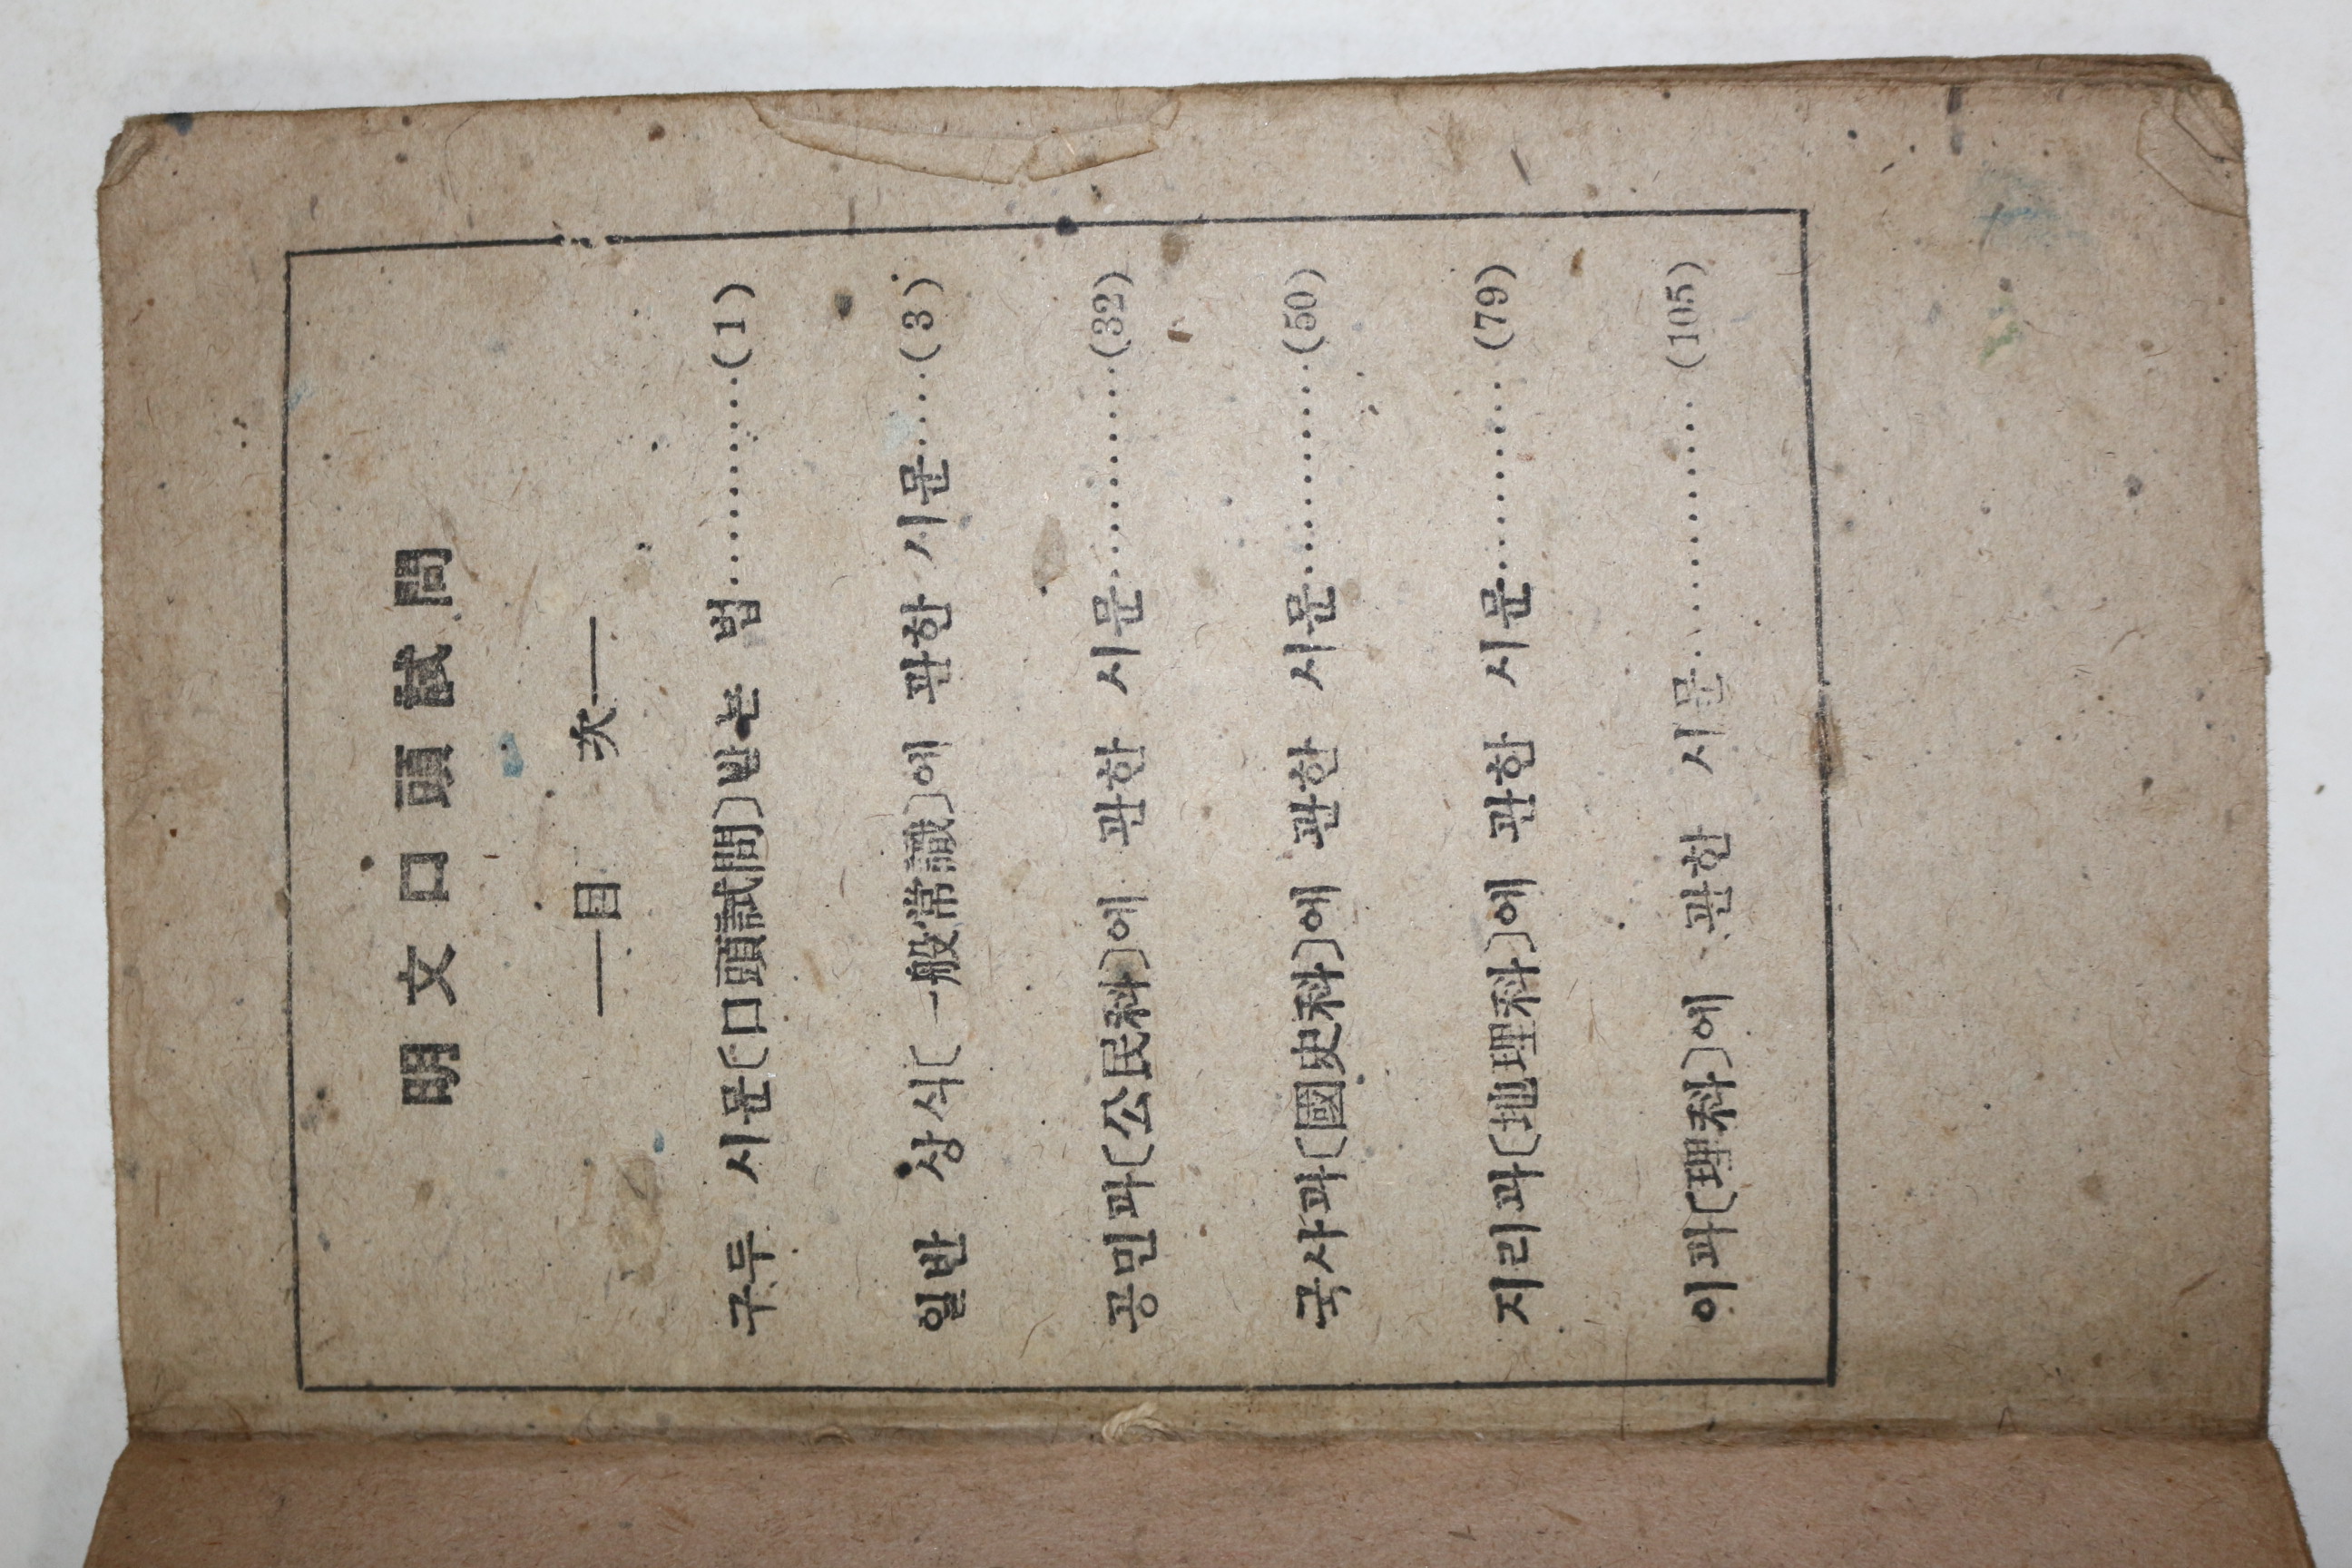 明文口頭試問
—目 次—
구두 시문〔口頭試問〕받는 법··········(1)
일반 상식〔一般常識〕에 관한 시문····(3)
공민과〔公民科〕에 관한 시문···········(32)
국사과〔國史科〕에 관한 시문···········(50)
지리과〔地理科〕에 관한 시문··········(79)
이과〔理科〕에 관한 시문·············(105)